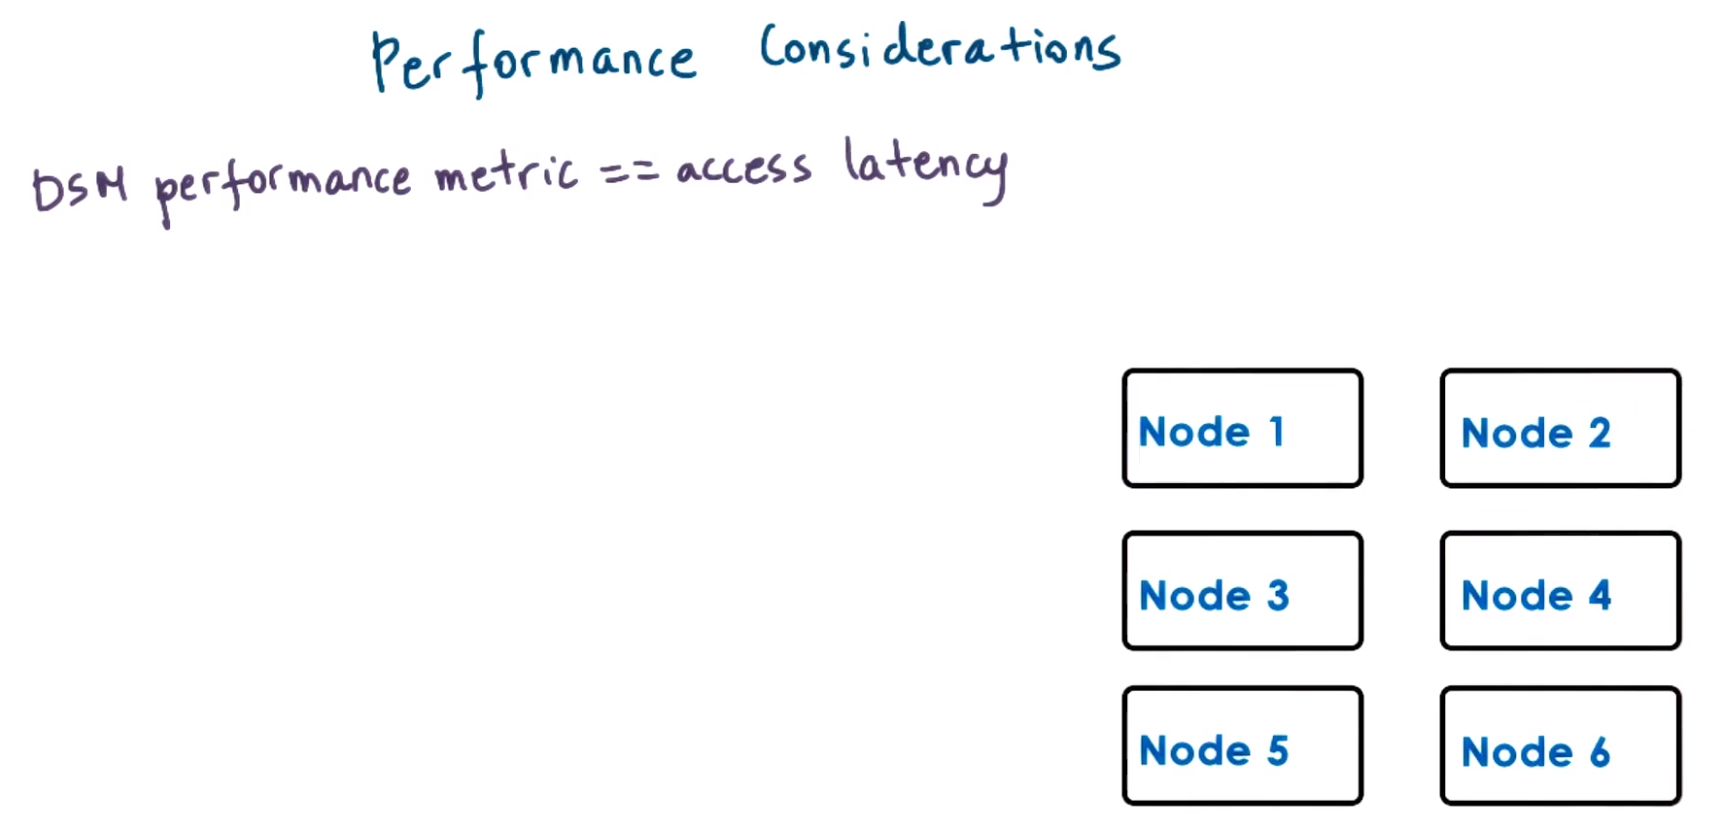 Performance Considerations
DSM performance metric == access latency
Node 1
Node 2
Node 3
Node 4
Node 5
Node 6